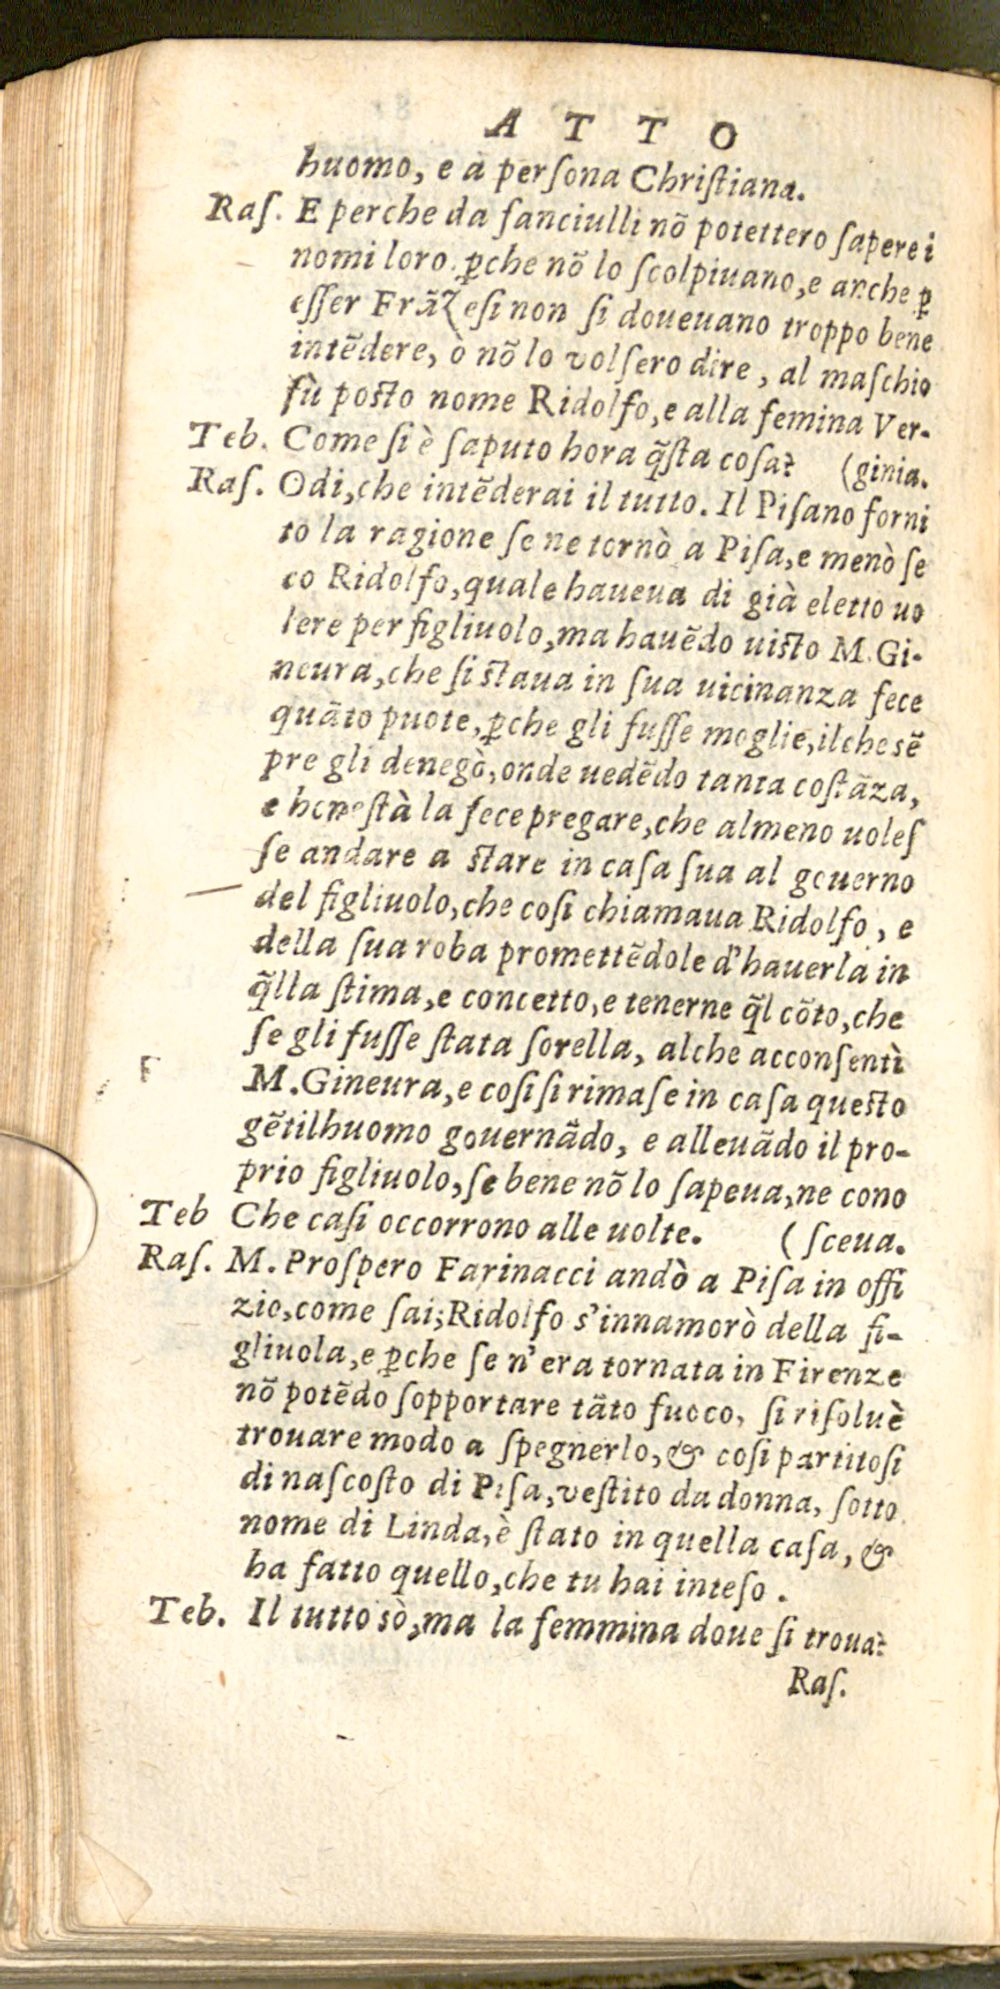 A T T O
huomo, e à perſona Chriſtiana.
Raſ. E perche da fanciulli nõ potettero ſapere i
nomi loro, ꝑche nõ lo ſcolpiuano, e anche ꝑ
eſſer Frãzeſi non ſi doueuano troppo bene
intẽdere, ò nõ lo volſero dire, al maſchio
fù poſto nome Ridolfo, e alla femina Ver-
Teb. Come ſi è ſaputo hora q̃ſta coſa? (ginia.
Raſ. Odi, che intẽderai il tutto. Il Piſano forni
to la ragione ſe ne tornò a Piſa, e menò ſe
co Ridolfo, quale haueua di già eletto uo
lere per figliuolo, ma hauẽdo uiſto M. Gi-
neura, che ſi ſtaua in ſua uicinanza fece
quãto puote, ꝑche gli fuſſe moglie, ilche sẽ
pre gli denegò, onde uedẽdo tanta coſtãza,
e honeſtà la fece pregare, che almeno uoleſ
ſe andare a ſtare in caſa ſua al gouerno
del figliuolo, che coſi chiamaua Ridolfo, e
della ſua roba promettẽdole d'hauerla in
q̃lla ſtima, e concetto, e tenerne q̃l cõto, che
ſe gli fuſſe ſtata ſorella, alche acconſentì
M. Gineura, e coſi ſi rimaſe in caſa queſto
gẽtilhuomo gouernãdo, e alleuãdo il pro-
prio figliuolo, ſe bene nõ lo ſapeua, ne cono
Teb Che caſi occorrono alle uolte. (ſceua.
Raſ. M. Proſpero Farinacci andò a Piſa in offi
zio, come ſai; Ridolfo s'innamorò della fi-
gliuola, e ꝑche ſe n'era tornata in Firenze
nõ potẽdo ſopportare tãto fuoco, ſi riſoluè
trouare modo a ſpegnerlo, & coſi partitoſi
di naſcoſto di Piſa, veſtito da donna, ſotto
nome di Linda, è ſtato in quella caſa, &
ha fatto quello, che tu hai inteſo.
Teb. Il tutto sò, ma la femmina doue ſi troua?
Raſ.